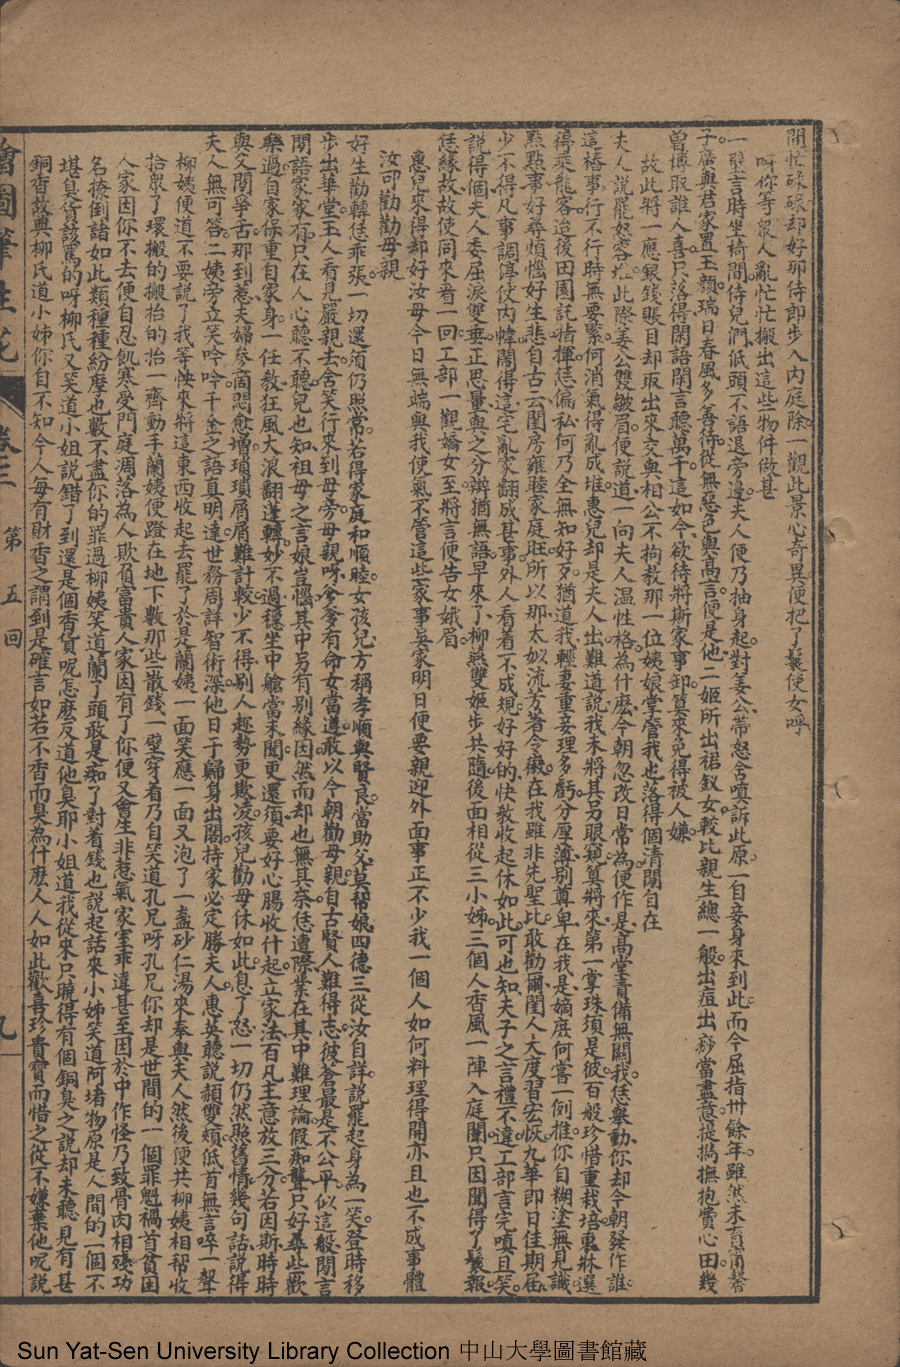 閒忙碌碌却好那待即步入內庭除一觀此景心奇異便把了鬟使女呼
呀你等眾人亂忙忙搬出這些物件做甚
一壁言時坐椅間侍兒們低頭不語退旁邊夫人便乃抽身起對姜公帶怒含嗔訴此原一自妾身來到此而今屈指卅餘年雖然未育甯馨
子廣與君家置玉顏瑞日春風多善待從無惡色與高言便是他二姬所出裙釵女較比親生總一般出痘出痧當盡意提攜撫抱費心田幾
曾博取誰人喜只落得閒語閒言聽萬千這如今欲待將斯家事卸算來免得被人嫌
故此將一應銀錢賬目却取出來交與相公不拘教那一位姨娘掌管我也落得個清閒自在
夫人說罷怒容堆此際姜公雙皺眉便說道一向夫人溫性格為什麼今朝忽改日常為便作是高堂責備無關我恁舉動你却今朝發作誰
這樁事行不行時無要緊何消氣得亂成堆惠兒却是夫人出難道說我未將其另眼窺算將來第一掌珠須是彼百般珍惜重栽培東牀選
得乘龍客迨後田園託指揮恁偏私何乃全無知好歹猶道我輕妻重妾理多虧分厚薄別尊卑在我是嫡庶何嘗一例推你自糊塗無見識
點點事好尋煩惱好生悲自古云閨房雍睦家庭旺所以那太姒流芳著令徽在我雖非先聖比敢勸爾閨人大度習宏恢九華即日佳期屆
少不得凡事調停仗內幃鬧得這宅亂家翻成甚事外人看着不成規好好的快教收起休如此可也知夫子之言禮不違工部言完嗔且笑
說得個夫人委屈淚雙垂正思量與之分辨猶無語早來了柳燕雙姬步共隨後面相從三小姊三個人香風一陣入庭闈只因聞得了鬟報
恁緣故故使同來看一回工部一觀嬌女至將言便告女娥眉
惠兒來得却好汝母今日無端與我使氣不管這些家事妄家明日便要親迎外面事正不少我一個人如何料理得開亦且也不成事體
汝可勸勸母親
好生勸轉恁乖張一切還須仍照常若得家庭和順睦女孩兒方稱孝順與賢良當助父莫帮娘四德三從汝自詳說罷起身為一笑登時移
步出華堂玉人看見嚴親去含笑行來到母旁母親呀爹爹有命女當遵敢以今朝勸母親自古賢人難得志彼蒼最是不公平似這般閒言
閒語家家有只在人心聽不聽兒也知祖母之言娘豈惱其中另有別緣因然而却也無其奈恁遭際業在其中難理論假痴聾只好尋些歡
樂過自家保重自家身一任教狂風大浪翻蓬轉妙不過穩坐中艙當未聞更還須要好心腸收什起立家法百凡主意放三分若因斯時時
與父閒爭舌那到惹夫婦參商悶愈增瑣瑣屑屑難計較少不得別人趣勢更欺凌孩兒勸母休如此息了怒一切仍然照舊情幾句話說得
夫人無可答二姨旁立笑吟吟千金之語真明達世務周詳智術深他日于歸身出閣持家必定勝夫人惠英聽說頳雙頰低首無言啐一聲
柳姨便道不要說了我等快來將這東西收起去罷了於是蘭姨一面笑應一面又泡了一盞砂仁湯來奉與夫人然後便共柳姨相帮收
拾眾了環搬的搬抬的抬一齊動手蘭姨便蹬在地下數那些散錢一壁穿着乃自笑道孔兄呀孔兄你却是世間的一個罪魁禍首貧困
人家因你不去便自忍飢寒受門庭凋落為人欺負富貴人家因有了你便又會生非惹氣家室乖違甚至因於中作怪乃致骨肉相殘功
名撩倒諸如此類種種紛摩也數不盡你的罪過柳姨笑道蘭了頭敢是痴了對着錢也說起話來小姊笑道阿堵物原是人間的一個不
堪臭貨該罵的呀柳氏又笑道小姐說錯了到還是個香貨呢怎麼反道他臭耶小姐道我從來只曉得有個銅臭之說却未聽見有甚
銅香故典柳氏道小姊你自不知今人每有財香之謂到是確言如若不香而臭為什麼人人如此歡喜珍貴寶而惜之從不嫌棄他呢說
繪圖筆生花 卷三 第五回 九
Sun Yat-Sen University Library Collection 中山大學圖書館藏